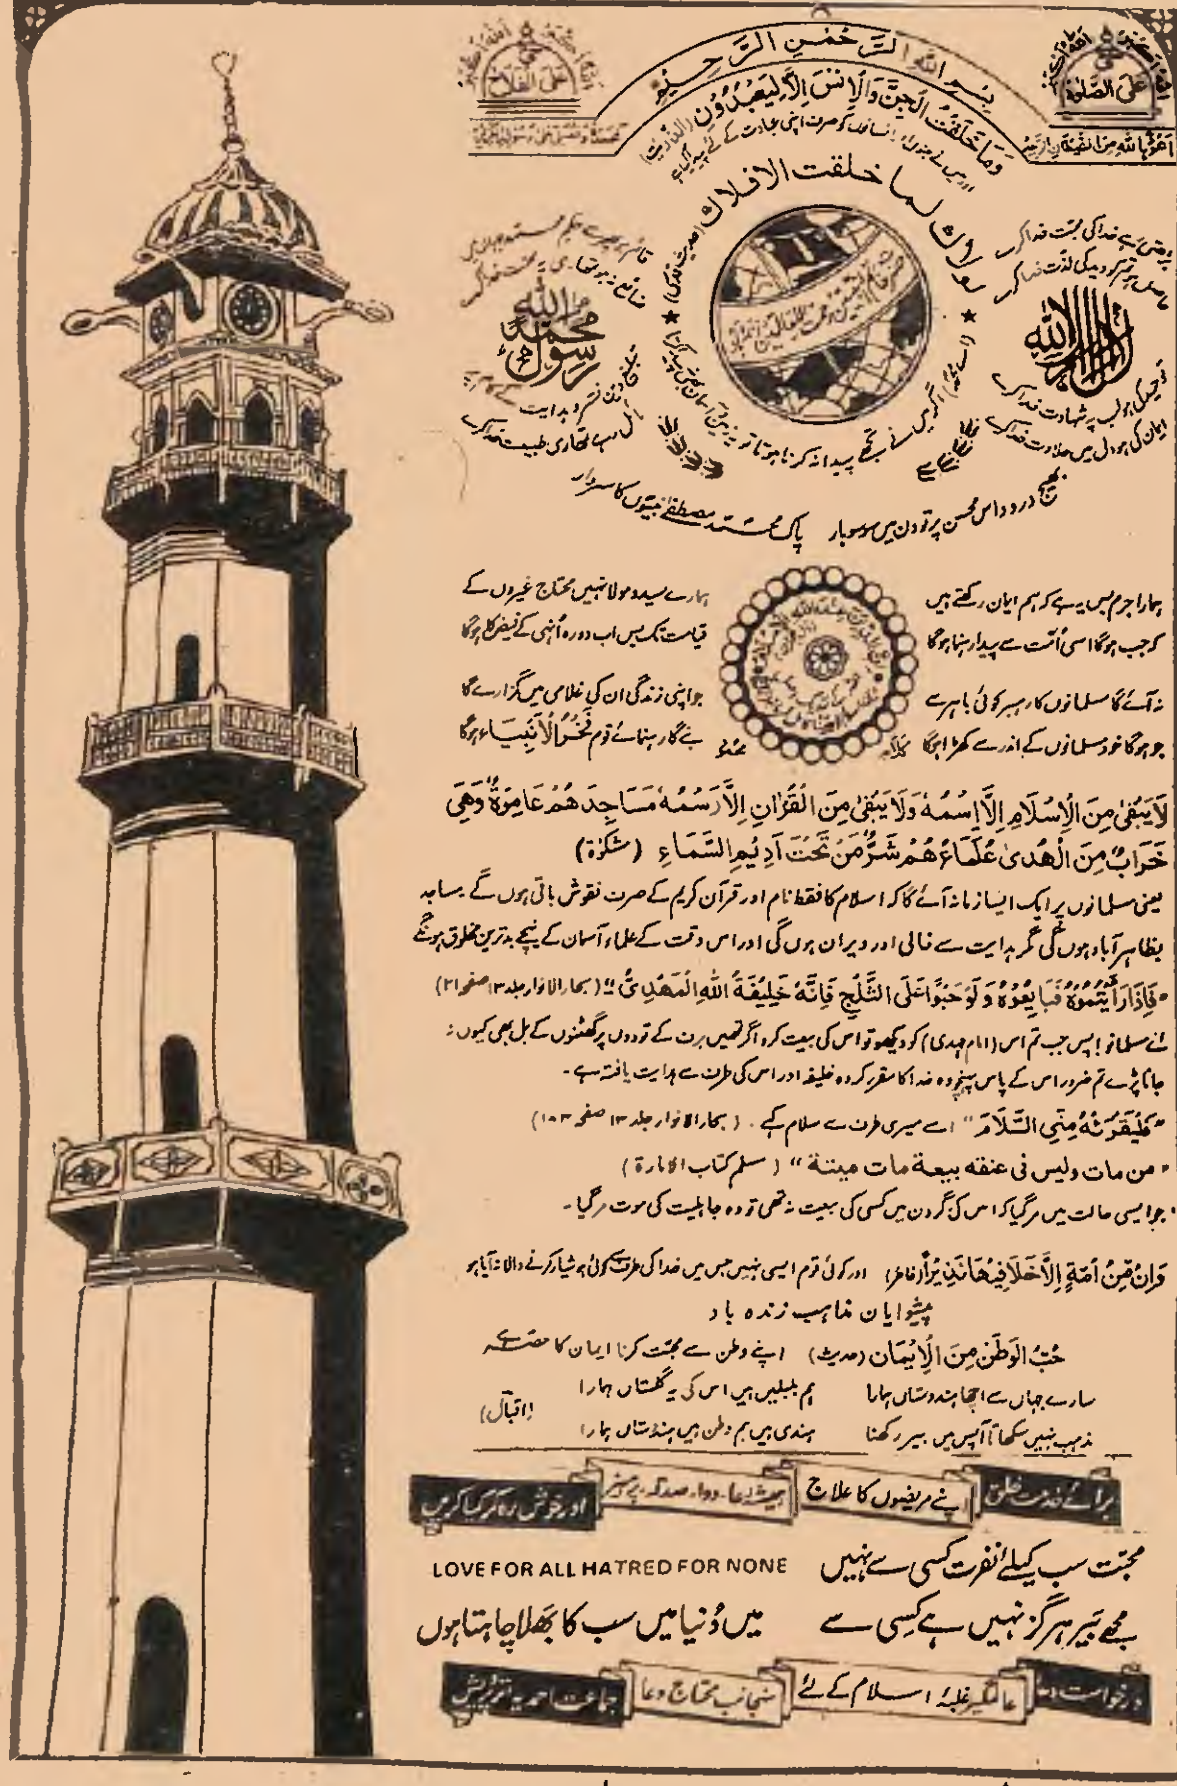 اللہ اکبر
حی علی الفلاح
حی علی الصلوٰۃ
بِسْمِ اللهِ الرَّحْمٰنِ الرَّحِیْمِ
وَمَا خَلَقْتُ الْجِنَّ وَالْاِنْسَ اِلَّا لِیَعْبُدُوْنِ
لولاک لما خلقت الافلاک (حدیث قدسی)
محمد رسول اللہ
بھیج درود اس محسن پر تو دن میں سو سو بار پاک محمد مصطفےٰ نبیوں کا سردار
ہمارا جرم بس یہ ہے کہ ہم ایمان رکھتے ہیں
کہ جب ہوگا اسی اُمّت سے پیدا رہنما ہوگا
ہمارے سید و مولا نہیں محتاج غیروں کے
قیامت تک بس اب دورہ اُنہی کے فیض کا ہوگا
نہ آئے گا مسلمانوں کا رہبر کوئی باہر سے
جو ہوگا خود مسلمانوں کے اندر سے کھڑا ہوگا
جو اپنی زندگی ان کی غلامی میں گزارے گا
بنے گا رہنمائے قوم فَخرُ الْاَنبِیَاء ہوگا
لَا یَبْقیٰ مِنَ الْاِسْلَامِ اِلَّا اِسْمُهٗ وَلَا یَبْقیٰ مِنَ الْقُرْاٰنِ اِلَّا رَسْمُهٗ مَسَاجِدَ هُمْ عَامِرَةٌ وَهِیَ
خَرَابٌ مِنَ الْهُدیٰ عُلَمَاءُ هُمْ شَرُّ مَنْ تَحْتَ اَدِیْمِ السَّمَاءِ (مشکوٰة)
یعنی مسلمانوں پر ایک ایسا زمانہ آئے گا کہ اسلام کا فقط نام اور قرآن کریم کے صرف نقوش باقی ہوں گے۔ مساجد
بظاہر آباد ہوں گی مگر ہدایت سے خالی اور ویران ہوں گی اور اس وقت کے علماء آسمان کے نیچے بدترین مخلوق ہونگے
"فَاِذَا رَاَیْتُمُوْهُ فَبَایِعُوْهُ وَلَوْ حَبْوًا عَلَی الثَّلْجِ فَاِنَّهٗ خَلِیْفَةُ اللهِ الْمَهْدِیُّ" (بحار الانوار جلد ۱۳ صفحہ ۲۱)
اے مسلمانو! پس جب تم اس (امام مہدی) کو دیکھو تو اس کی بیعت کرو اگر تمہیں برف کے تودوں پر گھٹنوں کے بل بھی کیوں نہ
جانا پڑے تم ضرور اس کے پاس پہنچو وہ خدا کا مقرر کردہ خلیفہ اور اس کی طرف سے ہدایت یافتہ ہے۔
"فَلْیَقْرَئْهُ مِنِّی السَّلَامَ" اسے میری طرف سے سلام کہے۔ (بحار الانوار جلد ۱۳ صفحہ ۱۸۳)
"من مات ولیس فی عنقه بیعة مات میتة" (مسلم کتاب الامارة)
جو ایسی حالت میں مر گیا کہ اس کی گردن میں کسی کی بیعت نہ تھی تو وہ جاہلیت کی موت مر گیا۔
وَاِنْ مِّنْ اُمَّةٍ اِلَّا خَلَا فِیْهَا نَذِیْرٌ (فاطر) اور کوئی قوم ایسی نہیں جس میں خدا کی طرف سے کوئی ہوشیار کرنے والا نہ آیا ہو
پیشوایان مذاہب زندہ باد
حُبُّ الْوَطَنِ مِنَ الْاِیْمَان (حدیث) اپنے وطن سے محبّت کرنا ایمان کا حصّہ ہے
سارے جہاں سے اچھا ہندوستاں ہمارا ہم بلبلیں ہیں اس کی یہ گلستاں ہمارا
مذہب نہیں سکھاتا آپس میں بیر رکھنا ہندی ہیں ہم وطن ہیں ہندوستاں ہمارا (اقبال)
برائے خدمت خلق اپنے مریضوں کا علاج ہمیشہ دعا۔ دوا۔ صدقہ۔ پرہیز اور خوش رہ کر کیا کریں
محبّت سب کیلئے نفرت کسی سے نہیں LOVE FOR ALL HATRED FOR NONE
مجھے بَیر ہرگز نہیں ہے کِسی سے میں دُنیا میں سب کا بھلا چاہتا ہوں
درخواست دعا عالمگیر غلبۂ اسلام کے لئے منجانب محتاج دعا جماعت احمدیہ اتر پردیش